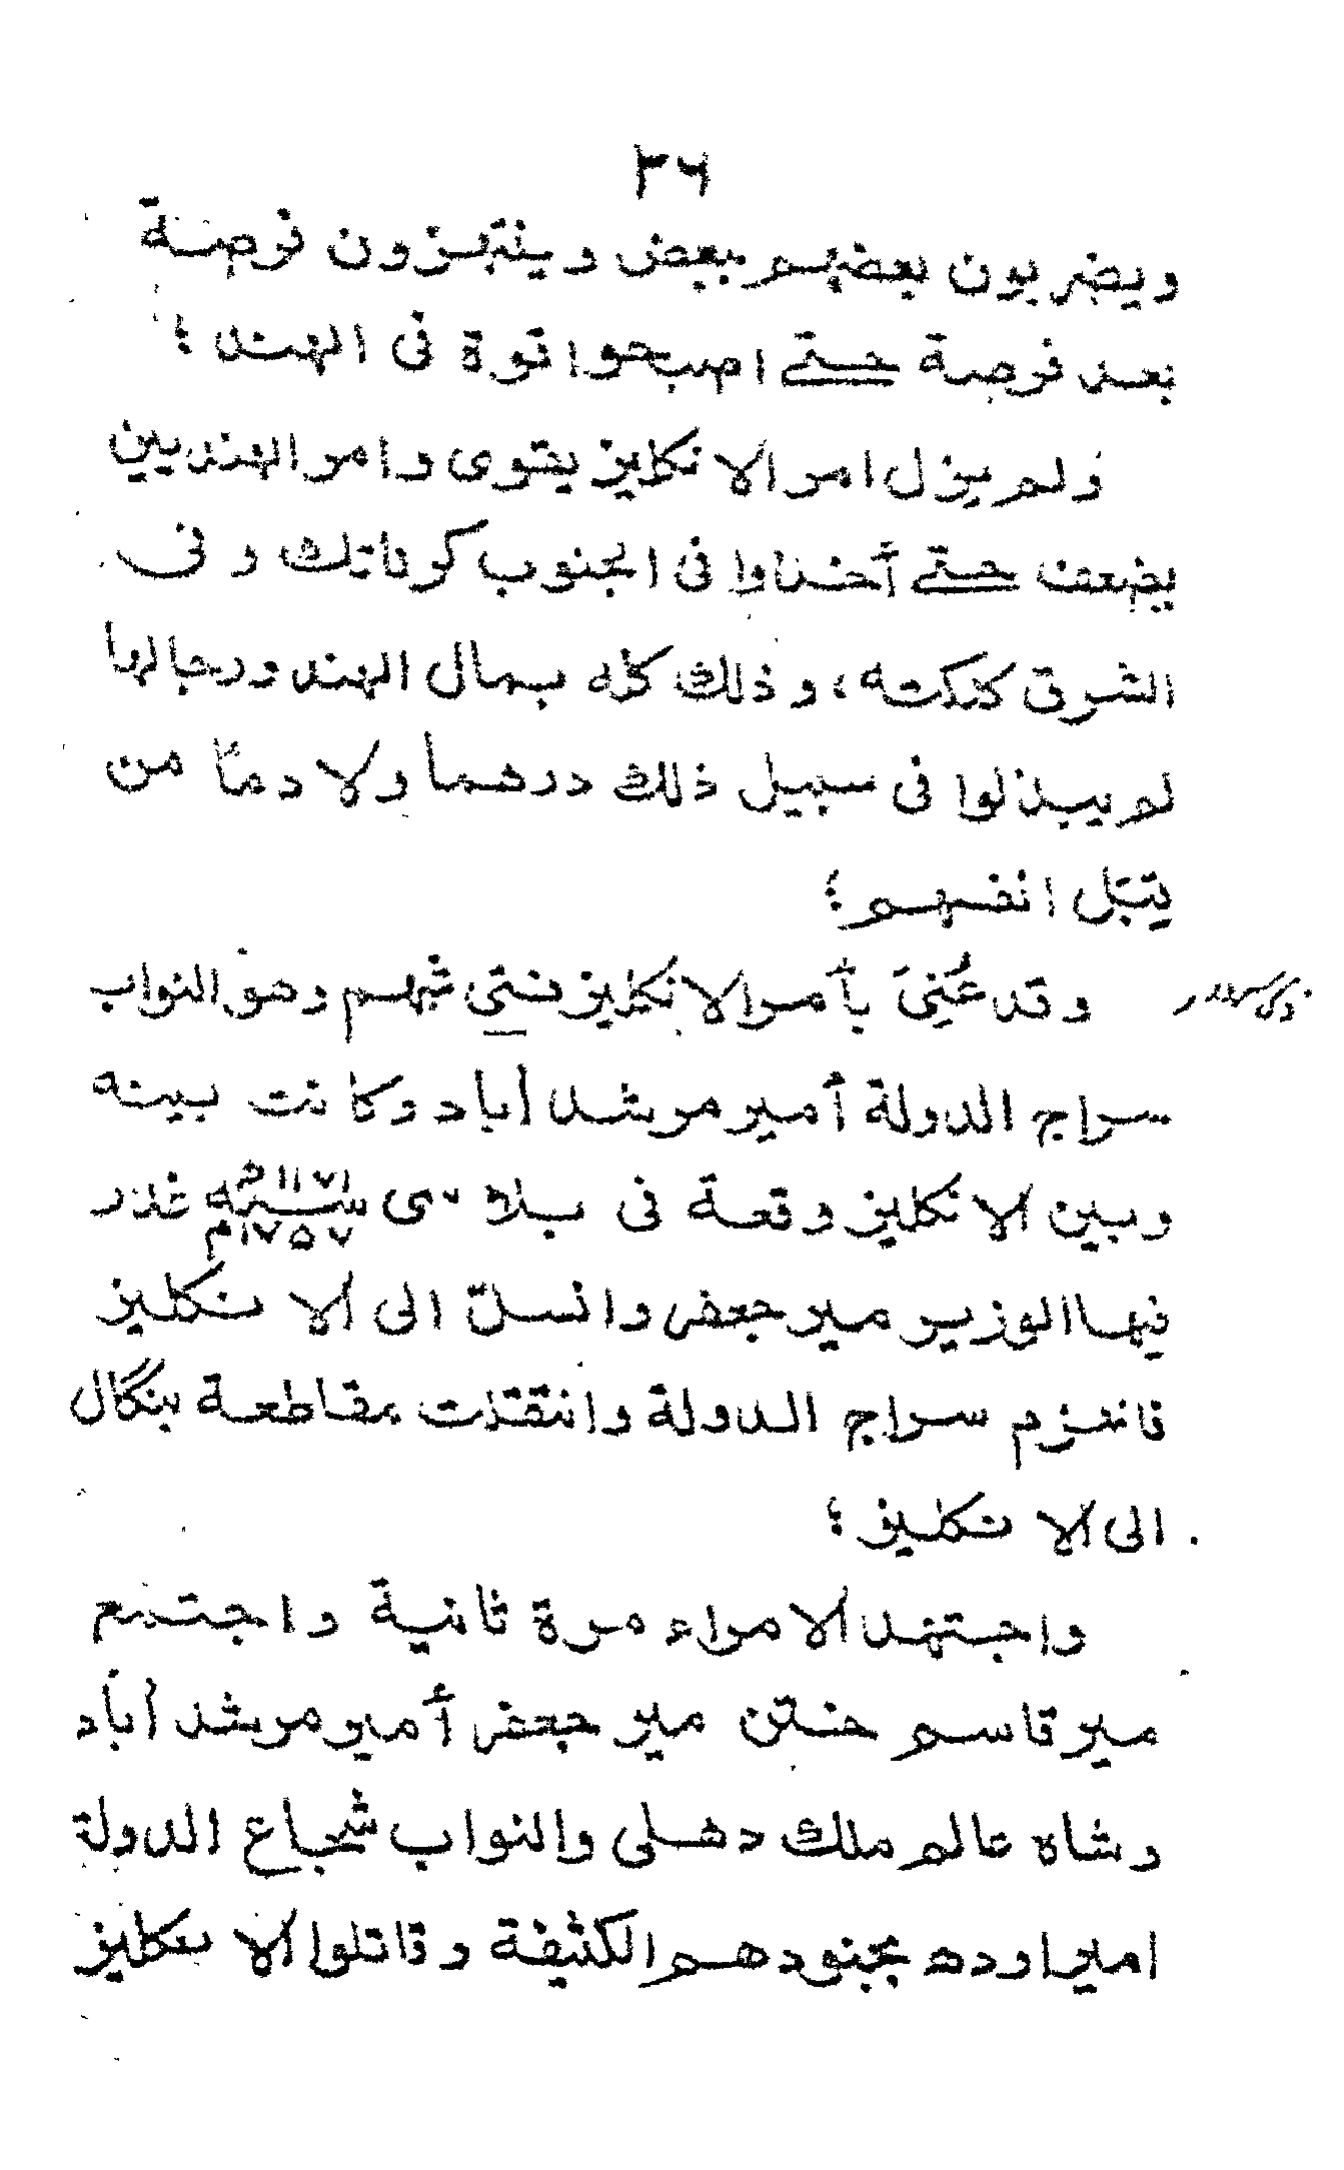 ٢٦
ويضربون بعضهم ببعض وينتهزون فرصة
بعد فرصة حتى اصبحوا قوة فى الهند؛
ولم يزل امر الانكليز يقوى وامر الهنديين
يضعف حتى أخذوا فى الجنوب كرناتك وفى
الشرق كلكته، وذلك كله بمال الهند ورجالها
لم يبذلوا فى سبيل ذلك درهما ولا دماً من
قِبَل انفسهم؛
وقد عُنِىَ بأمر الانكليز فتى شهم وهو النواب
سراج الدولة أمير مرشد آباد وكانت بينه
وبين الانكليز وقعة فى بلاسى سنة ١١٧١ه ١٧٥٧م غدر
فيها الوزير مير جعفر وانسل الى الانكليز
فانهزم سراج الدولة وانتقلت مقاطعة بنگال
الى الانكليز؛
واجتهد الامراء مرة ثانية واجتمع
مير قاسم ختن مير جعفر أمير مرشد آباد
وشاه عالم ملك دهلى والنواب شجاع الدولة
امير اوده بجنودهم الكثيفة وقاتلوا الانكليز